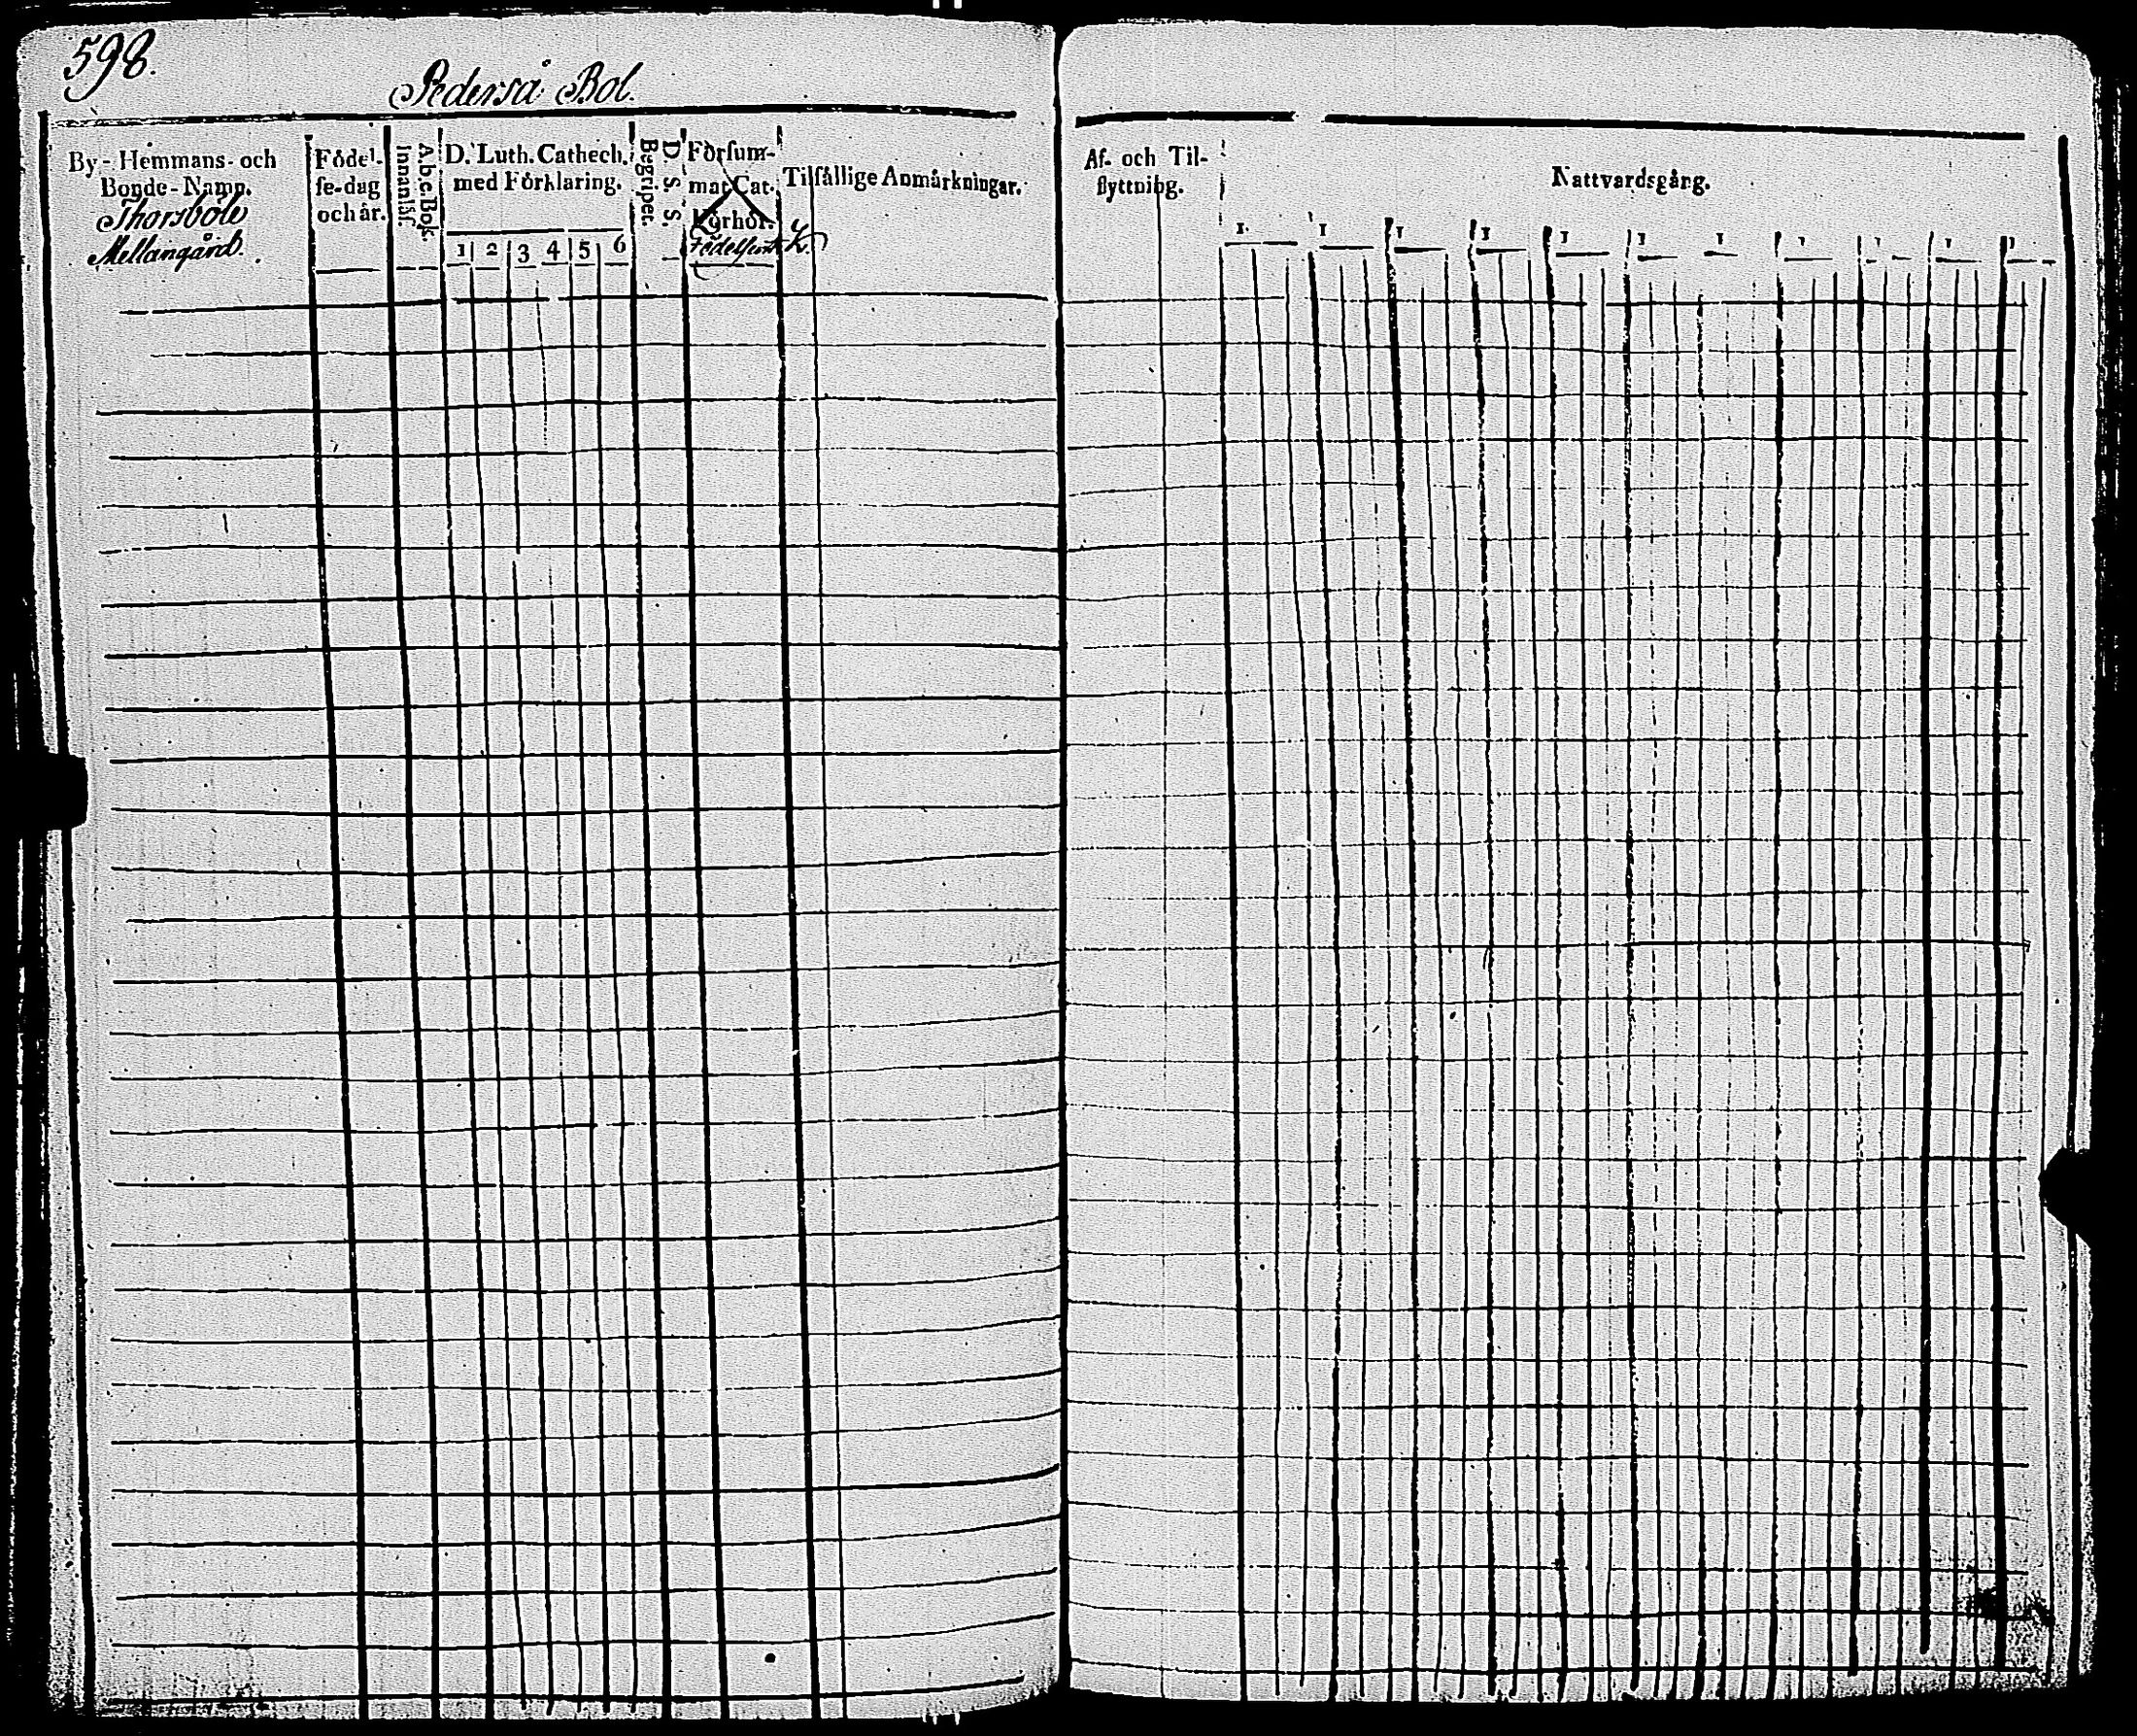 598.
Pederså Bol.
By- Hemmans- och
Bonde-Namn.
Thorsböle
Mellangård.
Födel-
se-dag
och år.
A.b.c.Bok.
Innanläs.
D. Luth. Cathech.
med Förklaring.
1 2 3 4 5 6
Begripet.
D. S. S.
Försum-
mat Cat.
Förhör.
Födelseort
K.
Tilfällige Anmärkningar.
Af- och Til-
flyttning.
Nattvardsgång.
1. 1 1 1 1 1 1 1 1 1 1